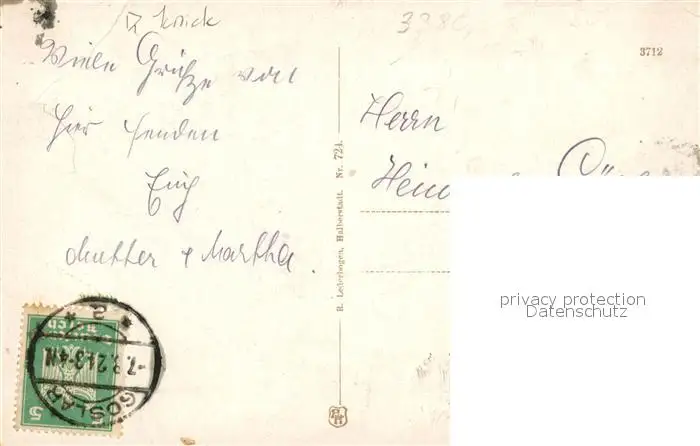 Knick
338G
3712
Viele Grüße von
hier senden
Euch
Mutter & Martha
R. Lederbogen, Halberstadt. Nr. 724.
Herrn
privacy protection
Datenschutz
GOSLAR
2
5